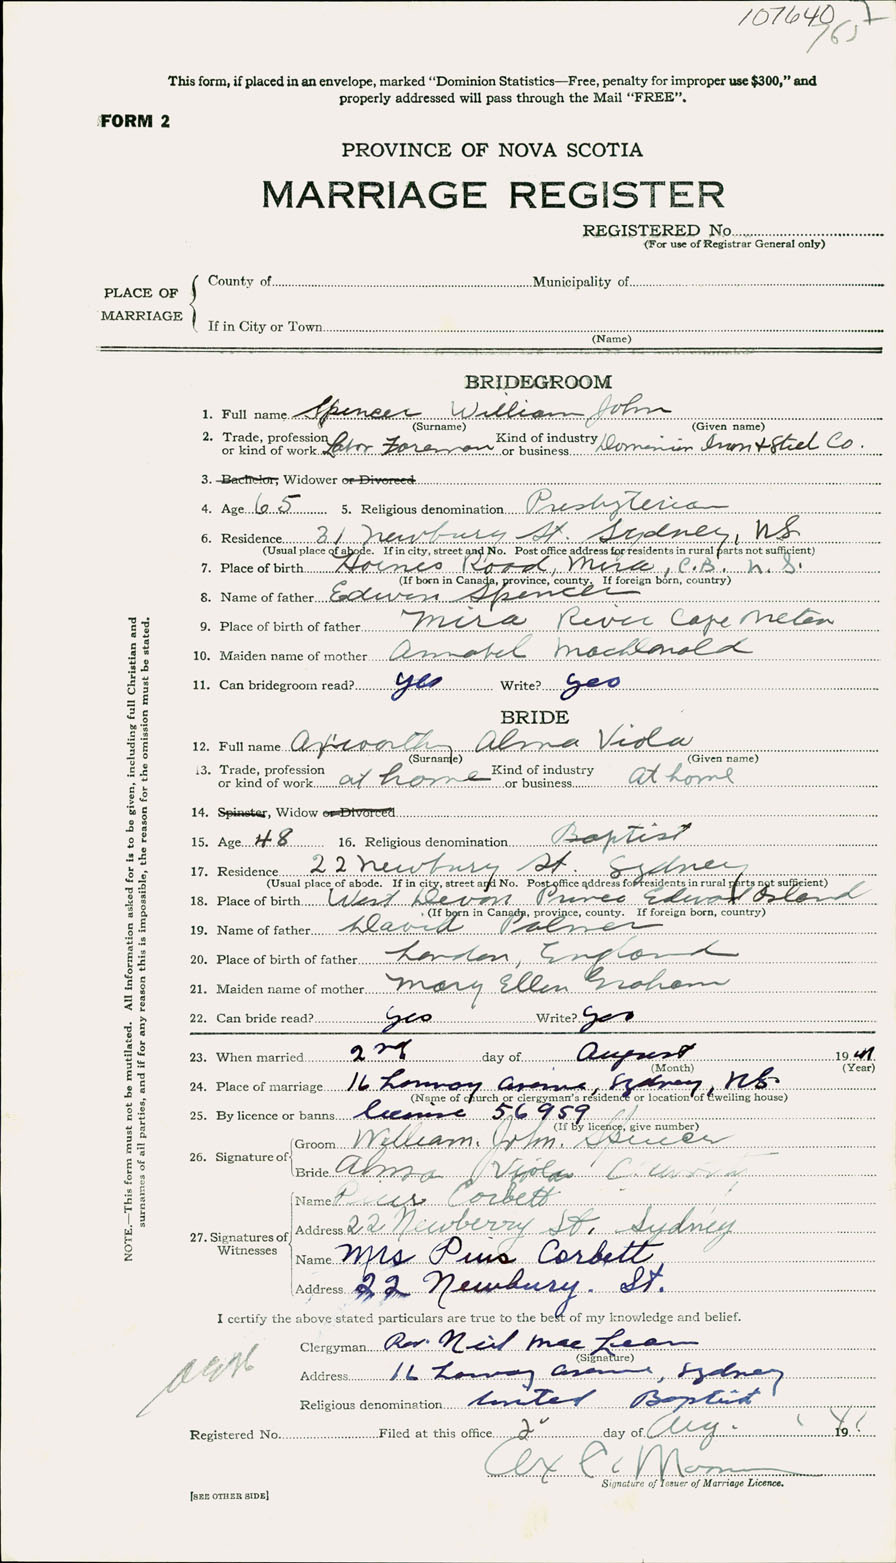 107640
This form, if placed in an envelope, marked “Dominion Statistics—Free, penalty for improper use $300,” and
properly addressed will pass through the Mail “FREE”.
FORM 2
PROVINCE OF NOVA SCOTIA
MARRIAGE REGISTER
REGISTERED No.
(For use of Registrar General only)
PLACE OF MARRIAGE
County of Municipality of
If in City or Town
(Name)
BRIDEGROOM
1. Full name Spencer William John
(Surname) (Given name)
2. Trade, profession or kind of work Labor Foreman Kind of industry or business Dominion Iron & Steel Co.
3. Bachelor, Widower or Divorced
4. Age 65 5. Religious denomination Presbyterian
6. Residence 21 Newbury St. Sydney, NS
(Usual place of abode. If in city, street and No. Post office address for residents in rural parts not sufficient)
7. Place of birth Road, Mira, C.B. N.S.
(If born in Canada, province, county. If foreign born, country)
8. Name of father Edwin Spencer
9. Place of birth of father Mira River Cape Breton
10. Maiden name of mother Annabel MacDonald
11. Can bridegroom read? yes Write? yes
BRIDE
12. Full name Alma Viola
(Surname) (Given name)
13. Trade, profession or kind of work at home Kind of industry or business at home
14. Spinster, Widow or Divorced
15. Age 48 16. Religious denomination Baptist
17. Residence 22 Newbury St. Sydney
(Usual place of abode. If in city, street and No. Post office address for residents in rural parts not sufficient)
18. Place of birth West Devon Prince Edward Island
(If born in Canada, province, county. If foreign born, country)
19. Name of father David Palmer
20. Place of birth of father London, England
21. Maiden name of mother Mary Ellen Graham
22. Can bride read? yes Write? yes
23. When married 2nd day of August 1941
(Month) (Year)
24. Place of marriage 16 avenue, Sydney, NS
(Name of church or clergyman's residence or location of dwelling house)
25. By licence or banns license 56959
(If by licence, give number)
26. Signature of
Groom William. John. Spencer
Bride Alma Viola
27. Signatures of Witnesses
Name Pius Corbett
Address 22 Newberry St. Sydney
Name Mrs Pius Corbett
Address 22 Newbury. St.
I certify the above stated particulars are true to the best of my knowledge and belief.
Clergyman Rev. Neil MacLean
(Signature)
Address 16 avenue, Sydney
Religious denomination United Baptist
Registered No. Filed at this office 2" day of Aug. 1941
Signature of Issuer of Marriage Licence.
[SEE OTHER SIDE]
NOTE.—This form must not be mutilated. All information asked for is to be given, including full Christian and
surnames of all parties, and if for any reason this is impossible, the reason for the omission must be stated.